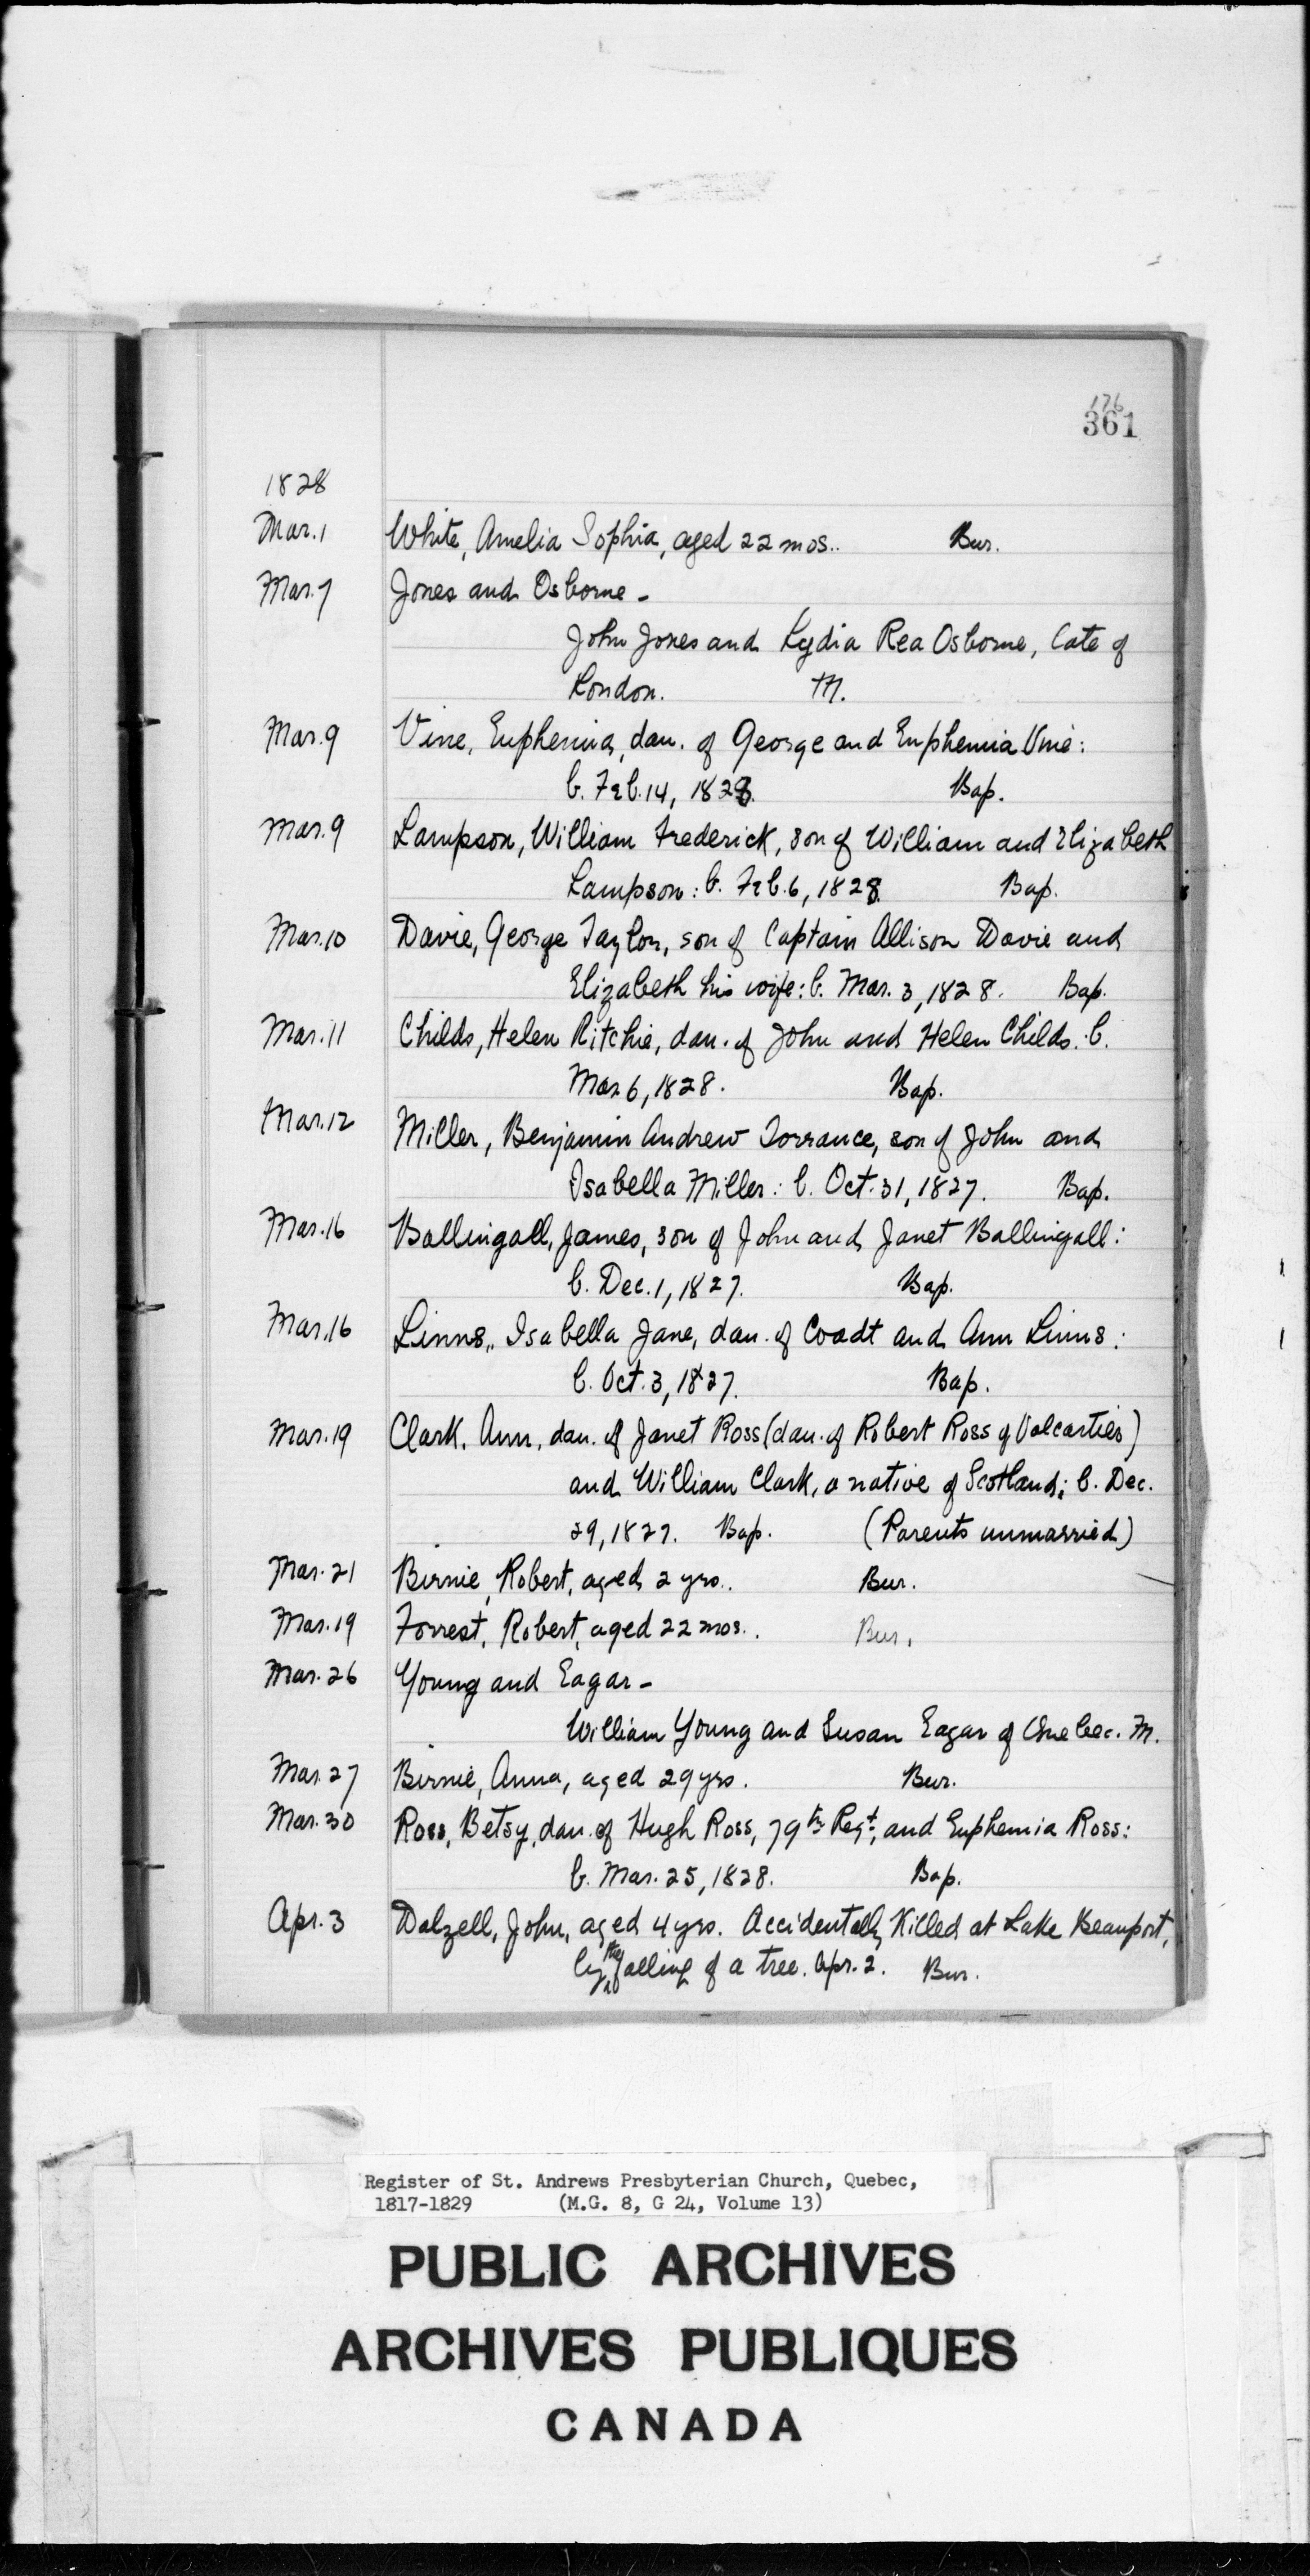 176
361
1828
Mar. 1 White, Amelia Sophia, aged 22 mos.. Bur.
Mar. 7 Jones and Osborne -
John Jones and Lydia Rea Osborne, late of
London. M.
Mar. 9 Vine, Euphemia, dau. of George and Euphemia Vine:
b. Feb. 14, 1828. Bap.
Mar. 9 Lampson, William Frederick, son of William and Elizabeth
Lampson: b. Feb. 6, 1828. Bap.
Mar. 10 Davie, George Taylor, son of Captain Allison Davie and
Elizabeth his wife: b. Mar. 3, 1828. Bap.
Mar. 11 Childs, Helen Ritchie, dau. of John and Helen Childs: b.
Mar. 6, 1828. Bap.
Mar. 12 Miller, Benjamin Andrew Torrance, son of John and
Isabella Miller: b. Oct. 31, 1827. Bap.
Mar. 16 Ballingall, James, son of John and Janet Ballingall:
b. Dec. 1, 1827. Bap.
Mar. 16 Linns, Isabella Jane, dau. of Coadt and Ann Linns:
b. Oct. 3, 1827. Bap.
Mar. 19 Clark, Ann, dau. of Janet Ross (dau. of Robert Ross of Valcartier)
and William Clark, a native of Scotland; b. Dec.
29, 1827. Bap. (Parents unmarried)
Mar. 21 Birnie, Robert, aged 2 yrs.. Bur.
Mar. 19 Forrest, Robert, aged 22 mos.. Bur.
Mar. 26 Young and Eagar -
William Young and Susan Eagar of Quebec. M.
Mar. 27 Birnie, Anna, aged 29 yrs. Bur.
Mar. 30 Ross, Betsy, dau. of Hugh Ross, 79th Regt, and Euphemia Ross:
b. Mar. 25, 1828. Bap.
Apr. 3 Dalzell, John, aged 4 yrs. Accidentally Killed at Lake Beauport,
by the falling of a tree. Apr. 2. Bur.
Register of St. Andrews Presbyterian Church, Quebec,
1817-1829 (M.G. 8, G 24, Volume 13)
PUBLIC ARCHIVES
ARCHIVES PUBLIQUES
CANADA